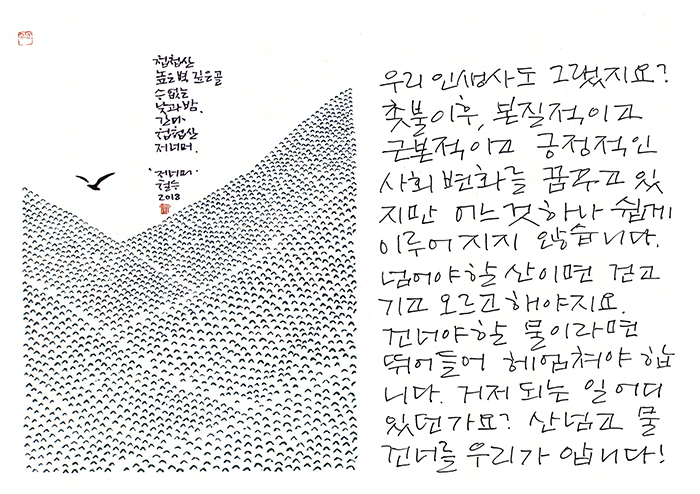 첩첩산
높은벼 깊은골
수없는
낮과밤.
간다.
첩첩산
저너머.
'저너머'
철수
2018
우리 인생사도 그렇지요?
촛불이후, 본질적이고
근본적이고 긍정적인
사회변화를 꿈꾸고 있
지만 어느것하나 쉽게
이루어지지 않습니다.
넘어야할 산이면 걷고
기고 오르고 해야지요.
건너야할 물이라면
뛰어들어 헤엄쳐야 합
니다. 거저 되는 일 어디
있던가요? 산넘고 물
건너를 우리가 압니다!